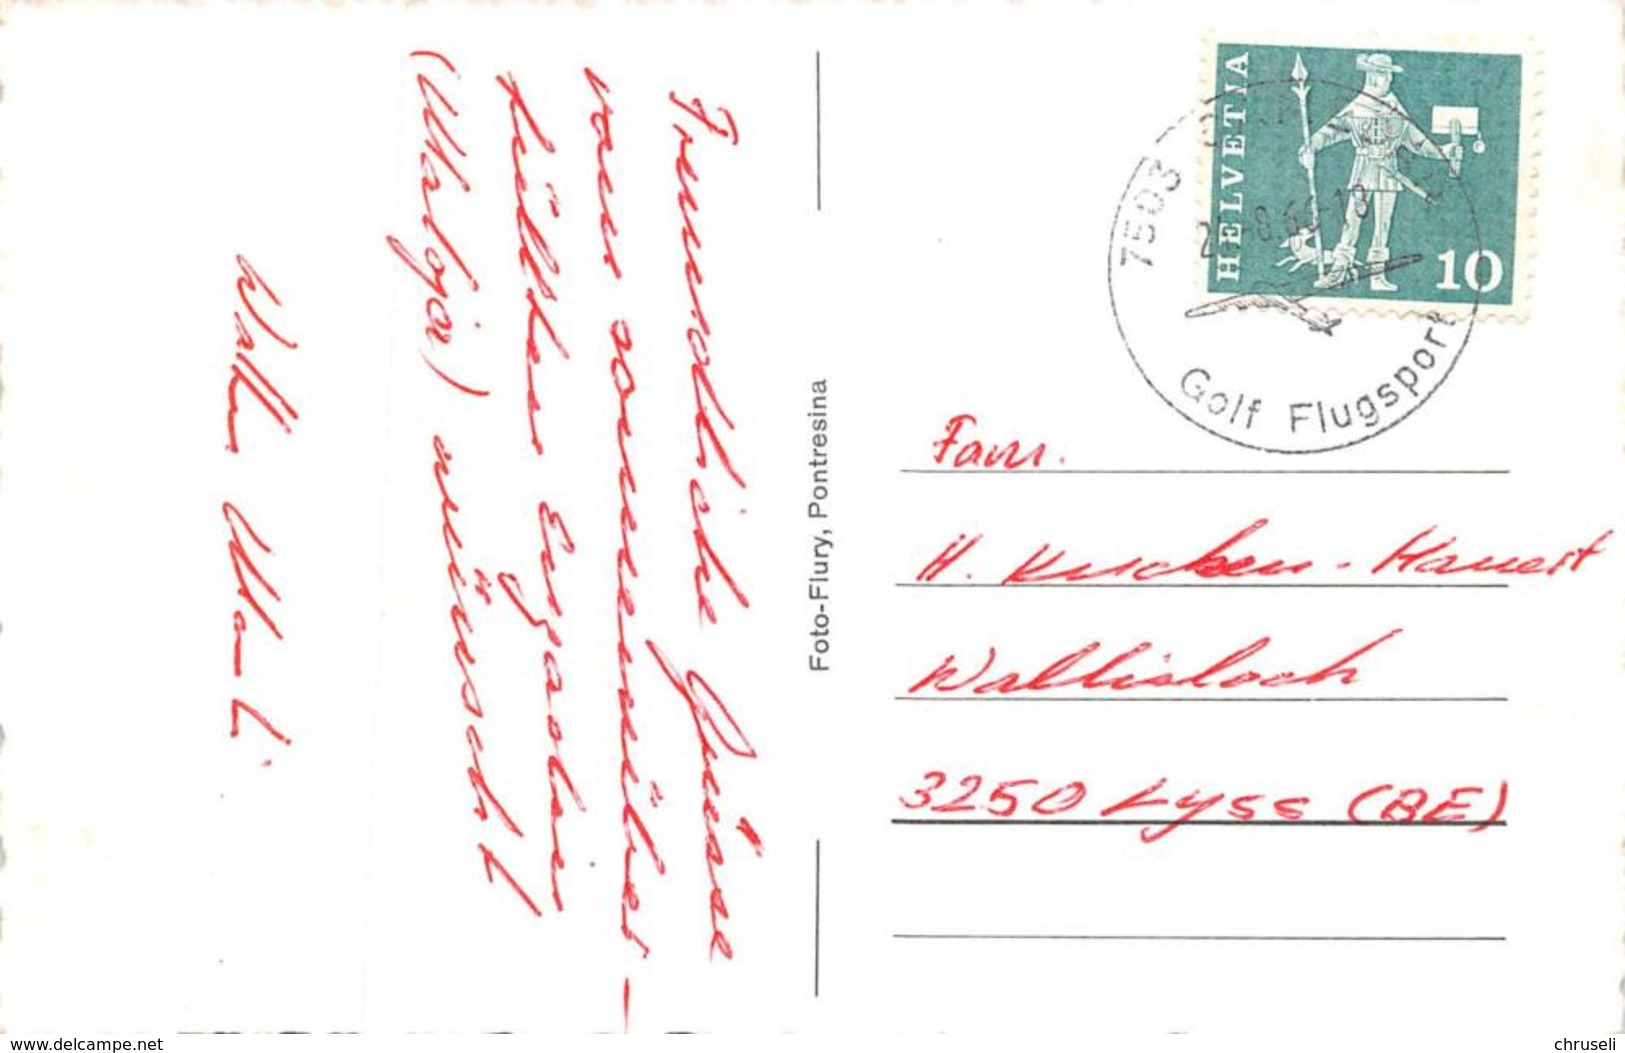 Freundliche Grüsse
vom sonnenüber-
füllten Engadin
(Maloja) wünscht
Foto-Flury, Pontresina
HELVETIA
10
7503
8.6
-18
Golf Flugsport
Fam.
H.
Wallisloch
3250 Lyss (BE)
www.delcampe.net
chruseli